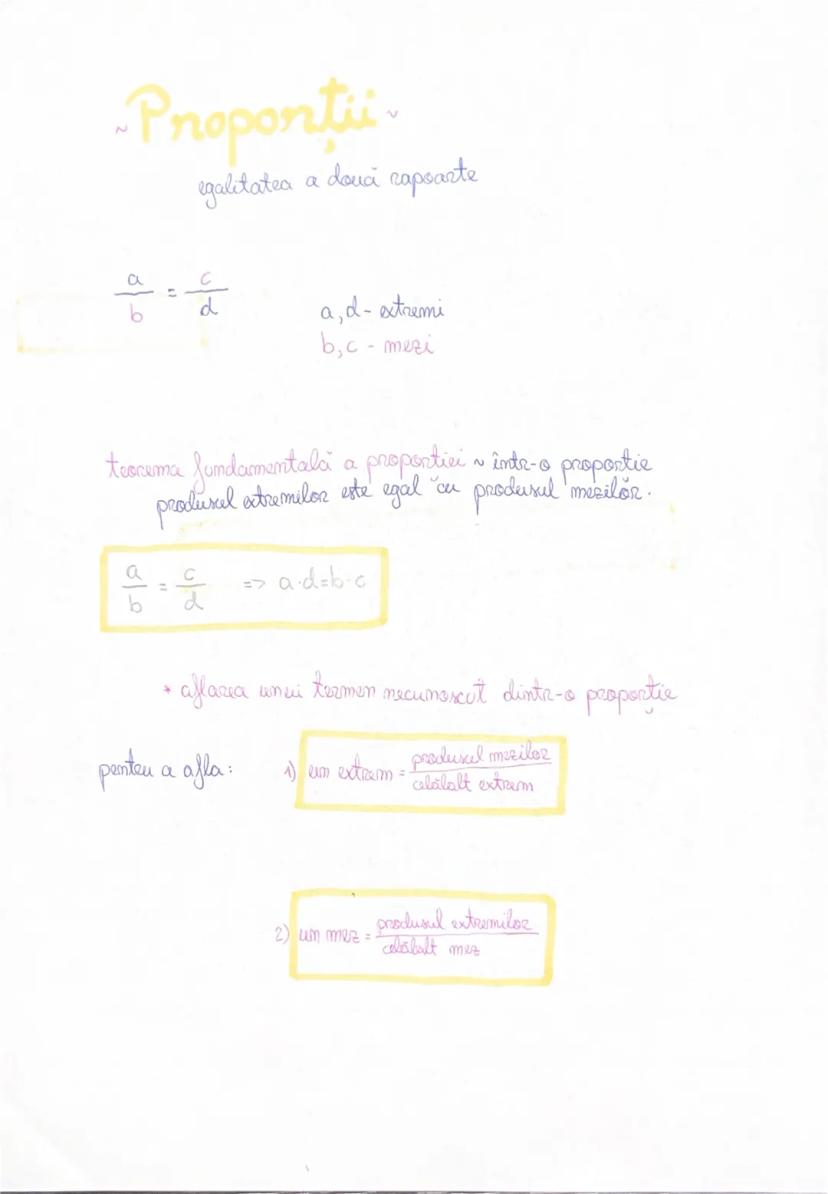 ~ Proporții ~
egalitatea a două rapoarte
a/b = c/d
a, d - extremi
b, c - mezi
teorema fundamentală a proporției ~ într-o proporție
produsul extremilor este egal cu produsul mezilor.
a/b = c/d => a·d=b·c
* aflarea unui termen necunoscut dintr-o proporție
pentru a afla: 1) un extrem = produsul mezilor/celălalt extrem
2) un mez = produsul extremilor/celălalt mez